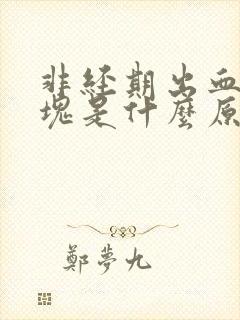 非經期出血
塊是什麼原
鄭夢九